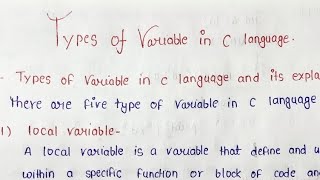 Types of Variable in C language.
- Types of Variable in C language and its expla
there are five type of Variable in C language
1) local variable-
A local variable is a variable that define and u
within a specific function or block of code an